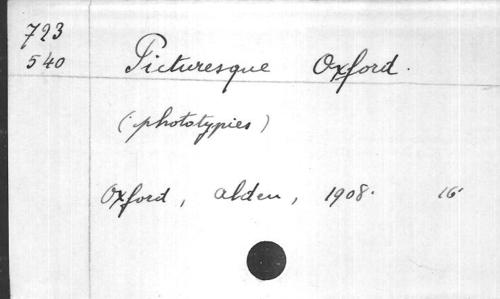 793
540
Picturesque Oxford.
(phototypies)
Oxford, Alden, 1908. 16°